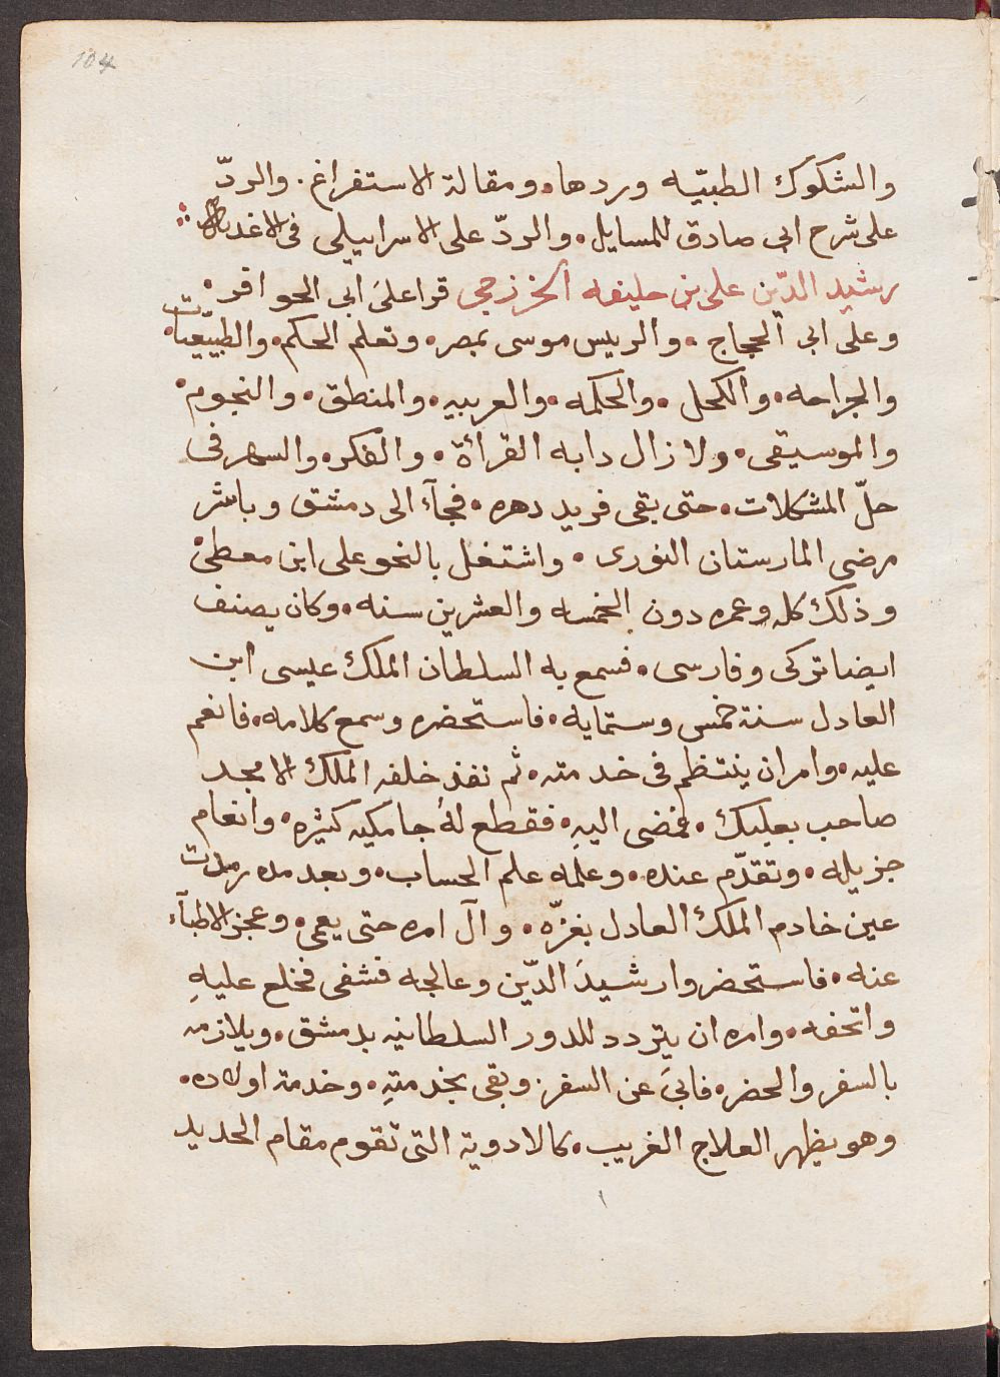 104
والشكوك الطبيّه وردها، ومقالة الاستفراغ. والردّ
على شرح ابى صادق للمسايل، والردّ على الاسراييلى فى الاغدية
رشيد الدّين على بن خليفه الخزرجى قرا على ابى الحوافر،
وعلى ابى الحجاج، والرييس موسى بمصر، وتعلم الحكم، والطبيعيات
والجراحه، والكحل، والحكمه، والعربيه، والمنطق، والنجوم،
والموسيقى، ولا زال دابه القرأة، والفكر، والسهر فى
حلّ المشكلات، حتى بقى فريد دهره، فجآء الى دمشق وباشر
مرضى المارستان النورى، واشتغل بالنحو على ابن معطى
وذلك كله وعمره دون الخمسه والعشرين سنه، وكان يصنف
ايضا تركى وفارسى، فسمع به السلطان الملك عيسى ابن
العادل سنة خمس وستمايه، فاستحضره وسمع كلامه، فانعم
عليه، وامر ان ينتظم فى خدمته، ثم نفذ خلفه الملك الامجد
صاحب بعلبك، فمضى اليهِ، فقطع لهُ جامكيه كثيره، وانعام
جزيله، وتقدّم عنده، وعلمه علم الحساب، وبعد مده رمدت
عين خادم الملك العادل بغزّه، وآل امره حتى يعمى، وعجز الاطبآء
عنه، فاستحضروا رشيدَ الدّين وعالجه فشفى فخلع عليهِ
واتحفه، وامره ان يتردد للدور السلطانيه بدمشق، ويلازمه
بالسفر والحضر، فابىَ عن السفر. وبقى بخدمتهِ، وخدمة اولاده،
وهو يظهر العلاج الغريب، كالادوية التى تقوم مقام الحديد